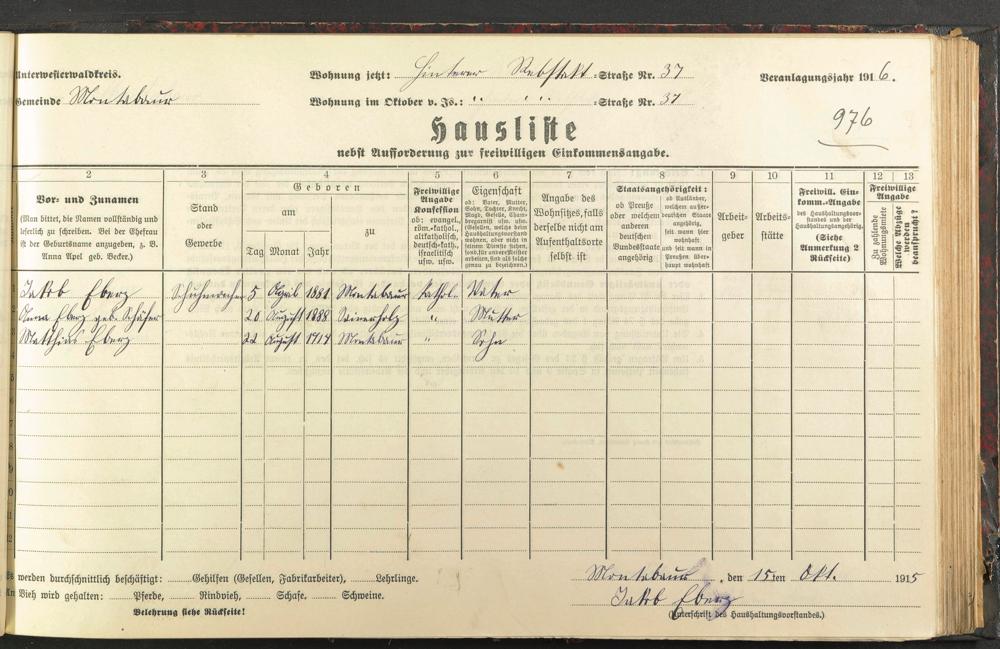 Unterwesterwaldkreis.
Wohnung jetzt: Hinterer Rebstock-Straße Nr. 37
Veranlagungsjahr 1916.
Gemeinde Montabaur
Wohnung im Oktober v. Js.: " " " -Straße Nr. 37
976
Hausliste
nebst Aufforderung zur freiwilligen Einkommensangabe.
2
3
4
5
6
7
8
9
10
11
12
13
Vor- und Zunamen
(Man bittet, die Namen vollständig und
leserlich zu schreiben. Bei der Ehefrau
ist der Geburtsname anzugeben, z. B.
Anna Apel geb. Becker.)
Stand
oder
Gewerbe
Geboren
am
zu
Tag Monat Jahr
Freiwillige
Angabe
Konfession
ob: evangel.,
röm.-kathol.,
altkatholisch,
deutsch-kath.,
israelitisch
usw. usw.
Eigenschaft
ob: Vater, Mutter,
Sohn, Tochter, Knecht,
Magd, Geselle, Cham-
bregarnist usw. usw.
(Gesellen, welche beim
Haushaltungsvorstand
wohnen, aber nicht in
seinem Dienste stehen,
sond. für andere Meister
arbeiten, sind als solche
genau zu bezeichnen.)
Angabe des
Wohnsitzes, falls
derselbe nicht am
Aufenthaltsorte
selbst ist
Staatsangehörigkeit:
ob Preuße
oder welchem
anderen
deutschen
Bundesstaate
angehörig
ob Ausländer,
welchem außer-
deutschen Staate
angehörig,
seit wann hier
wohnhaft
und seit wann in
Preußen über-
haupt wohnhaft
Arbeit-
geber
Arbeits-
stätte
Freiwill. Ein-
komm.-Angabe
des Haushaltungsvor-
standes und der
Haushaltungsangehörig.
(Siehe
Anmerkung 2
Rückseite)
Freiwillige
Angabe
Zu zahlende
Wohnungsmiete
Welche Abzüge
werden
beansprucht?
Jakob Eberz Schuhmacher 5 April 1881 Montabaur kathol. Vater
Anna Eberz geb. Schäfer 20 August 1888 Steinerholz " Mutter
Matthias Eberz 22 August 1914 Montabaur " Sohn
werden durchschnittlich beschäftigt: Gehilfen (Gesellen, Fabrikarbeiter), Lehrlinge.
Vieh wird gehalten: Pferde, Rindvieh, Schafe. Schweine.
Belehrung siehe Rückseite!
Montabaur, den 15ten Okt. 1915
Jakob Eberz
(Unterschrift des Haushaltungsvorstandes.)